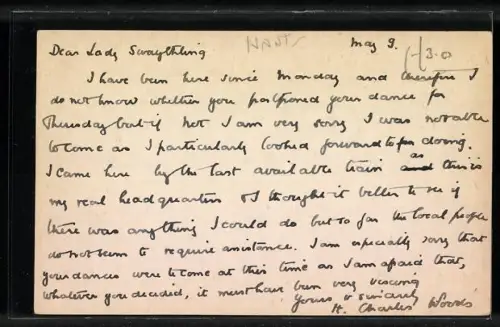 HANTS
May 9.
Dear Lady Swaythling
-/3.0
I have been here since Monday and therefore I
do not know whether you postponed your dance for
Thursday but if not I am very sorry I was not able
to come as I particularly looked forward to doing.
I came here by the last available train as this is
my real headquarters & I thought it better to see if
there was anything I could do but so far the local people
do not seem to require assistance. I am especially sorry that
your dances were to come at this time as I am afraid that,
whatever you decided, it must have been very vexing
Yours v sincerely
H. Charles Woods